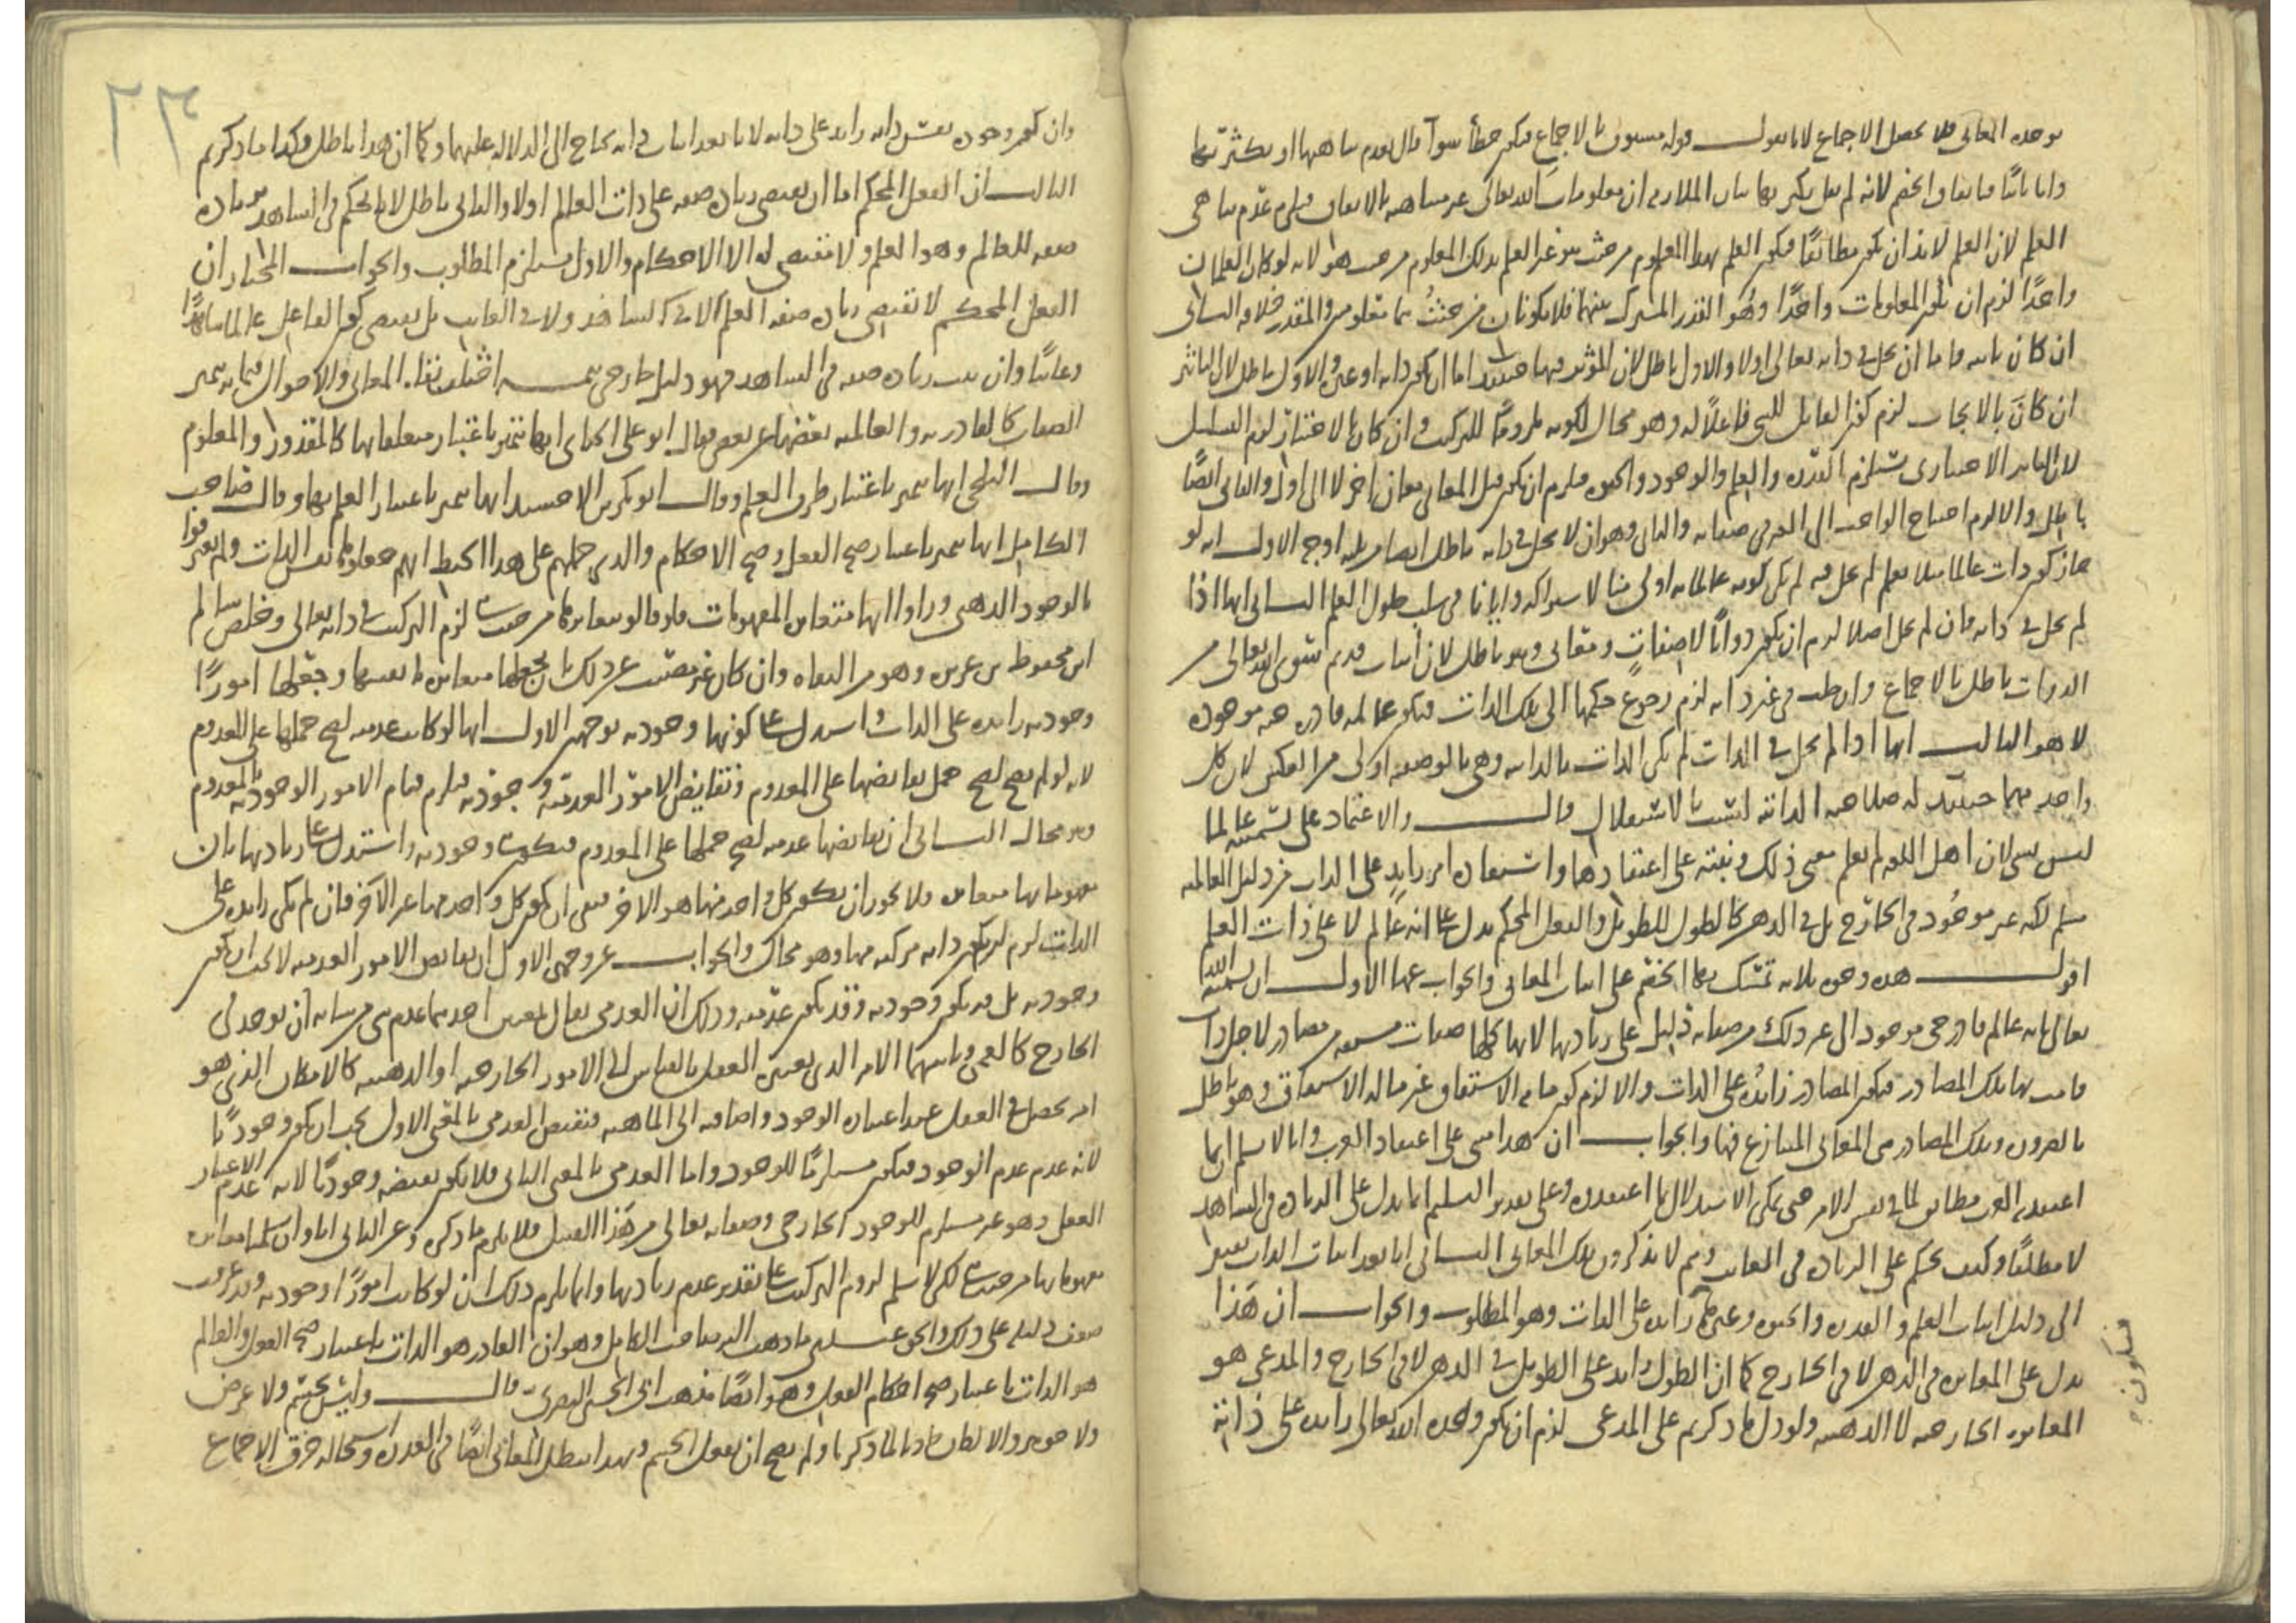 بوحده المعاني فلا يحصل الاجماع لانا نقول قوله مسبوق بالاجماع فيكون خطأ سوآ قال بعدم تناهيها او بكثرتها
واما ثانيا فباتفاق الخصم لانه لم يقل بكثرتها بيان الملازمة ان معلومات الله تعالى غير متناهية بالاتفاق فيلزم عدم تناهي
العلم لان العلم لا بد ان يكون مطابقا فيكون العلم بهذا المعلوم من حيث هو غير العلم بذلك المعلوم من حيث هو لانه لو كان العلمان
واحدا لزم ان يكون المعلومات واحدا وهو القدر المشترك بينهما فلا يكونان من حيث هما معلومين والمقدر خلافه الثاني
ان كان ثابته فاما ان يحل في ذاته تعالى اولا والاول باطل لان المؤثر فيها حينئذ اما ان يكون ذاته او غيره والاول باطل لان التاثير
ان كان بالايجاب لزم كون القابل للشي فاعلا له وهو محال لكونه ملزوما للتركيب وان كان بالاختيار لزم التسلسل
لان التاثير الاختياري يستلزم القدرة والعلم والوجود والحيوة فيلزم ان يكون قبل المعاني معان اخر لا الى اول والثاني ايضا
باطل والا لزم احتياج الواجب الى الغير في صفاته والثاني وهو ان لا يحل في ذاته باطل ايضا من ثلثة اوجه الاول انه لو
جاز كون ذات عالما مثلا بعلم لم يحل فيه لم يكن كونه عالما به اولى منا لاشتراكه وايانا في سلب حلول العلم الثاني انها اذا
لم يحل في ذاته فان لم يحل اصلا لزم ان يكون ذواتا لا صفات ومعاني وهو باطل لان اثبات قديم سوى الله تعالى من
الذوات باطل بالاجماع وان حلت في غير ذاته لزم رجوع حكمها الى تلك الذات فيكون عالمه قادره حيه موجوده
لا هو الثالث انها اذا لم يحل في الذات لم يكن الذات بالذاتية وهي بالوصفية اولى من العكس لان كل
واحد منهما حينئذ له صلاحية الذاتية ليست بالاستقلال قال والاعتماد على تسميته عالما
ليس بشي لان اهل اللغة لم تعلم معنى ذلك وتبنيه على اعتقادها واستفادة امر زايد على الذات من دليل العالمية
مسلم لكنه غير موجود في الخارج بل في الذهن كالطول للطويل والفعل المحكم يدل على انه عالم لا على ذات العلم
اقول هذه وجوه ثلاثة تمسك بها الخصم على اثبات المعاني والجواب عنها الاول ان تسمية الله
تعالى بانه عالم قادر حي موجود الى غير ذلك من صفاته دليل على زيادتها لانها كلها صفات مشتقة من مصادر لاجل ذات
قامت بها تلك المصادر فيكون المصادر زائده على الذات والا لزم كون ما به الاشتقاق غير ما له الاشتقاق وهو باطل
بالضرورة وتلك المصادر هي المعاني المتنازع فيها والجواب ان هذا مبني على اعتقاد العرب وانا لا نسلم ان ما
اعتقده العرب مطابق لما في نفس الامر حتى يمكن الاستدلال بما اعتقدوه وعلى تقدير التسليم انما يدل على الزيادة في الشاهد
لا مطلقا وكيف يحكم على الزيادة في الغائب وهم لا يذكرون تلك المعاني الثاني انا بعد اثبات الذات نفتقر
الى دليل اثبات العلم والقدرة والحيوة وغيرها زايده على الذات وهو المطلوب والجواب ان هذا
يدل على المغايرة في الذهن لا في الخارج كما ان الطول زايد على الطويل في الذهن لا في الخارج والمدعى هو
المغايرة الخارجية لا الذهنية ولو دل ما ذكرتم على المدعى لزم ان يكون وحدة الله تعالى زايده على ذاته
فيكون
٢٣
وان يكون وجوده نفس ذاته زايد على ذاته لانا بعد اثبات ذاته نحتاج الى الدلالة عليهما وكما ان هذا باطل فكذا ما ذكرتم
الثالث ان الفعل المحكم اما ان يقتضي زيادة صفة على ذات العالم اولا والثاني باطل لان المحكم في الشاهد
صفة للعالم وهو العلم ولا مقتضى له الا الاحكام والاول مستلزم المطلوب والجواب المختار ان
الفعل المحكم لا يقتضي زيادة صفة العلم لا في الشاهد ولا في الغائب بل يقتضي كون الفاعل عالما شاهدا
وغائبا وان ثبت زيادة صفة في الشاهد فهو دليل خارجي تتمة اختلف نفاة المعاني والاحوال فيما به تميز
الصفات كالقادرية والعالمية بعضها عن بعض فقال ابو علي الجبائي انها تتميز باعتبار متعلقاتها كالمقدور والمعلوم
وقال البلخي انها تتميز باعتبار طرق العلم وقال ابو بكر بن الاخشيد انها تتميز باعتبار العلم بها وقال صاحب
الكامل انها تتميز باعتبار صحة الفعل وصحة الاحكام والذي حملهم على هذا الخبط انهم جعلوها نفس الذات ولم يعترفوا
بالوجود الذهني وراوا انها متغايرة المفهومات فلو قالوا بتغايرها من حيث لزم التركيب في ذاته تعالى وخلص سالم
ابن محفوظ بن عزيزة وهو من النفاة وان كان غير مصيب عن ذلك بان جعلها متغايرة بانفسها وجعلها امورا
وجودية زايده على الذات واستدل على كونها وجودية بوجهين الاول انها لو كانت عدمية لصح حملها على المعدوم
لانه لو لم يصح لصح حمل نقائضها على المعدوم ونقايض الامور العدمية وجودية فيلزم قيام الامور الوجودية بالمعدوم
وهو محال الثاني ان نقائضها عدمية لصحة حملها على المعدوم فيكون وجودية واستدل على زيادتها بان
مفهوماتها متغايرة فلا يجوز ان يكون كل واحد منها هو الاخر فبقي ان يكون كل واحد منها غير الآخر فان لم يكن زايده على
الذات لزم ان يكون ذاته مركبة منها وهو محال والجواب عن وجهي الاول ان نقائض الامور العدمية لا يجب ان يكون
وجودية بل قد يكون وجودية وقد يكون عدمية وذلك ان العدمي يقال لمعنيين احدهما عدم شي من شانه ان يوجد في
الخارج كالعمى وثانيهما الامر الذي يعتبره العقل بالقياس الى الامور الخارجية او الذهنية كالامكان الذي هو
امر يحصل في العقل عند اعتباره الوجود واضافته الى الماهية فنقيض العدمي بالمعنى الاول يجب ان يكون وجوديا
لانه عدم عدم الوجود فيكون مستلزما للوجود واما العدمي بالمعنى الثاني فلا يكون نقيضه وجوديا لانه عدم الاعتبار
العقلي وهو غير مستلزم للوجود الخارجي وصفاته تعالى من هذا القبيل فلا يلزم ما ذكره وعن الثاني انا وان سلمنا تغاير
مفهوماتها من حيث لكن لا نسلم لزوم التركيب على تقدير عدم زيادتها وانما يلزم ذلك ان لو كانت امورا وجودية وقد عرفت
ضعف دليله على ذلك والحق عندي ما ذهب اليه صاحب الكامل وهو ان القادر هو الذات باعتبار صحة الفعل والعالم
هو الذات باعتبار صحة احكام الفعل وهو ايضا مذهب ابي الحسين البصري قال وليس بجسم ولا عرض
ولا جوهر والا لكان حادثا لما ذكرنا ولم يصح ان يفعل الجسم وبهذا تبطل المعاني ايضا في القدرة واستحالة خرق الاجماع